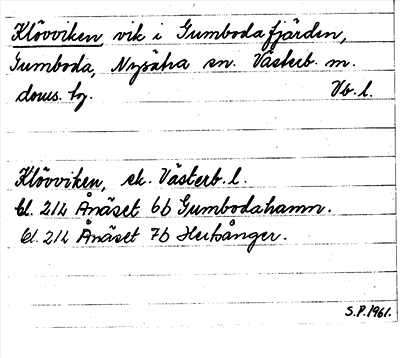 Klövviken, vik i Gumboda fjärden,
Gumboda, Nysätra sn. Västerb. m.
doms. tg. Vb. l.
Klövviken, ek. Västerb. l.
bl. 214 Ånäset 6b Gumbodahamn.
bl. 214 Ånäset 7b Hertsånger.
S.P. 1961.